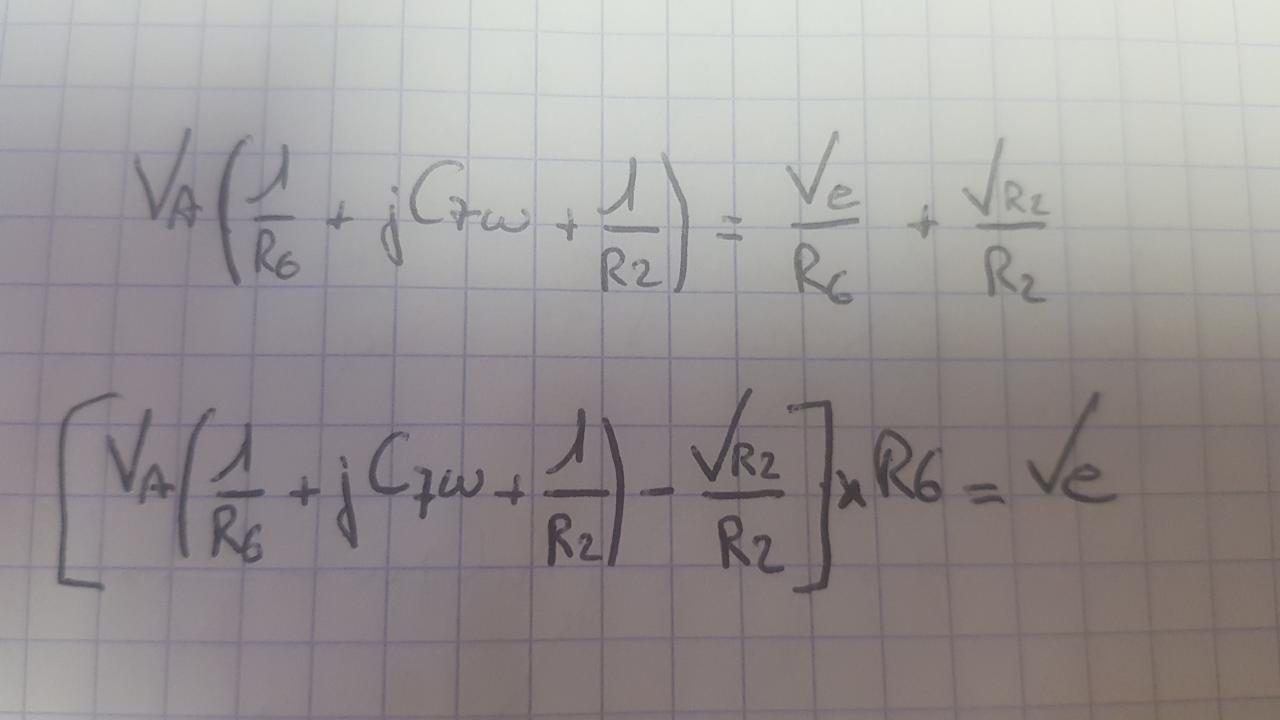 V_A(1/R_6 + jC_7ω + 1/R_2) = V_e/R_6 + V_R2/R_2
[V_A(1/R_6 + jC_7ω + 1/R_2) - V_R2/R_2] × R_6 = V_e